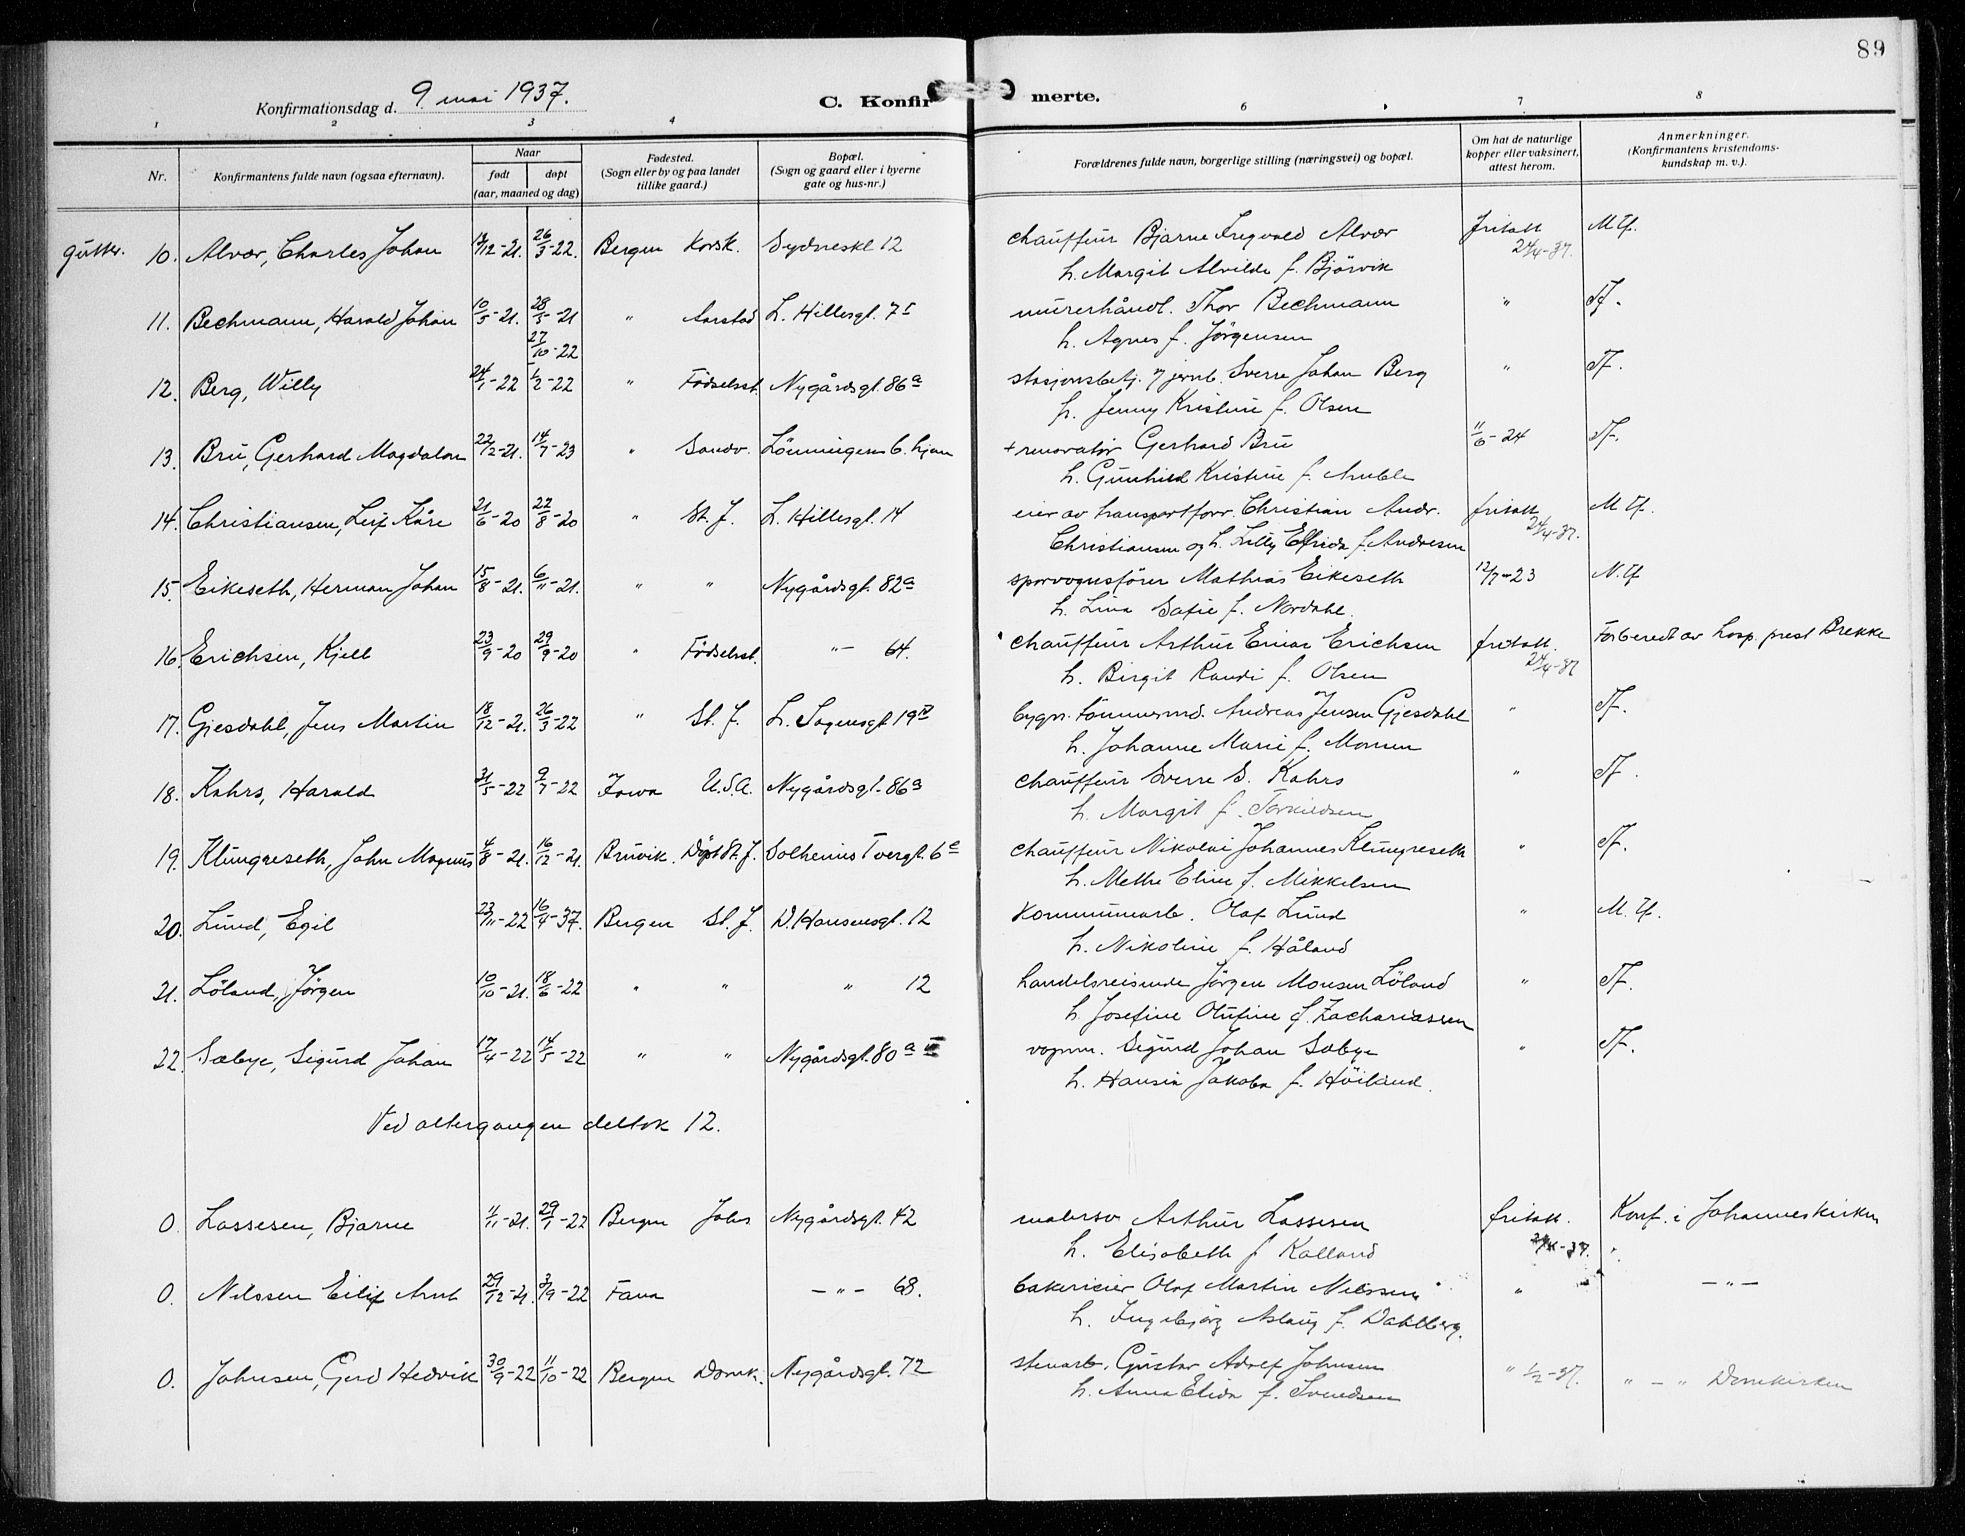 89
Konfirmationsdag d. 9 mai 1937. C. Konfirmerte.
1 2 3 4 6 7 8
Nr. Konfirmantens fulde navn (ogsaa efternavn). Naar født døpt (aar, maaned og dag) Fødested. (Sogn eller by og paa landet tillike gaard.) Bopæl. (Sogn og gaard eller i byerne gate og hus-nr.) Forældrenes fulde navn, borgerlige stilling (næringsvei) og bopæl. Om hat de naturlige kopper eller vaksinert, attest herom. Anmerkninger. (Konfirmantens kristendoms-kundskap m. v.).
gutter. 10. Alvær, Charles Johan /12-21. 26/3-22. Bergen Korsk. Sydneskl 12 chauffeur Bjarne Alvær fritatt M Tf.
h. Margit Alvilde f. Bjørvik 24/4-37.
11. Bechmann, Harald Johan 10/5-21. 28/5-21 " Aarstad L. Hillesgt. 7 I murerhåndl. Thor Bechmann " Tf.
27/10-22 h. Agnes f. Jørgensen
12. Berg, Willy 24/1-22 1/2-22 " Fødselsst. Nygårdsgt. 86a stasjonsbetj. v/ jernb. Sverre Johan Berg " Tf.
h. Jenny Kristine f. Olsen
13. Bru, Gerhard Magdalon 22/12-21. 14/7-23 " Sandv. Lønningens b. hjem + renovatør Gerhard Bru 11/6-24 Tf.
h. Gunhild Kristine f. Amble
14. Christiansen, Leif Kåre 21/6-20 22/8-20 " St. J. L. Hillesgt. 14 eier av transportforr. Christian Andr. fritatt M Tf.
Christiansen og h. Lilly Elfrida f. Andresen 24/4-37.
15. Eikeseth, Herman Johan 15/8-21. 6/11-21. " " Nygårdsgt. 82a sporvognsfører Mathias Eikeseth 12/7-23 N. Tf
h. Lina Sofie f. Nordahl.
16. Erichsen, Kjell 23/9-20 29/9-20 " Fødselsst. "- 64. chauffeur Arthur Einar Erichsen fritatt. Forberedt av hosp. prest Brekke
h. Birgit Randi f. Olsen 24/4-37
17. Gjesdahl, Jens Martin 18/12-21. 26/3-22 " St. J. L. Sagensgt 19 IV bygn. tømmermd. Andreas Jensen Gjesdahl " Tf.
h. Johanne Marie f. Monsen
18. Kahrs, Harald 31/5-22 9/7-22 Iowa U.S.A. Nygårdsgt. 86a chauffeur Sverre S. Kahrs " Tf.
h. Margit f. Torkildsen
19. Klungreseth, John Magnus 4/8-21. 16/12-21. Bruvik. Døpt St. J. Solheims Tvergt. 6c chauffeur Nikolai Johannes Klungreseth " Tf.
h. Methe Eline f. Mikkelsen
20. Lund, Egil 23/11-22 16/4-37. Bergen St. J. D. Hansensgt. 12 Kommunearb. Olaf Lund " M. Tf.
h. Nikoline f. Håland
21. Løland, Jørgen 10/10-21. 18/6-22 " " " 12 handelsreisende Jørgen Monsen Løland " Tf.
h. Josefine Olufine f. Zachariassen
22. Sæbye, Sigurd Johan 17/4-22 14/5-22 " " Nygårdsgt. 80a vognm. Sigurd Johan Sæbye " Tf.
h. Hansia Jakoba f. Høiland.
Ved altergangen deltok 12.
0. Lassesen, Bjarne 11/11-21. 29/1-22 Bergen Johs Nygårdsgt. 42 malersv Arthur Lassesen fritatt. Konf. i Johanneskirken
h. Elisabeth f Kalland 24/4-37.
0. Nilssen Eilif Arnt 29/12-21. 3/9-22 Fana - " - 68. bakerieier Olaf Martin Nilssen " - " -
h. Ingebjørg Aslaug f. Dahlberg.
0. Johnsen, Gerd Hedvik 30/9-22 11/10-22 Bergen Domk. Nygårdsgt. 72 stuearb. Gustav Adolf Johnsen " 1/2-37. " - " Domkirken
h. Anna Elida f. Svendsen